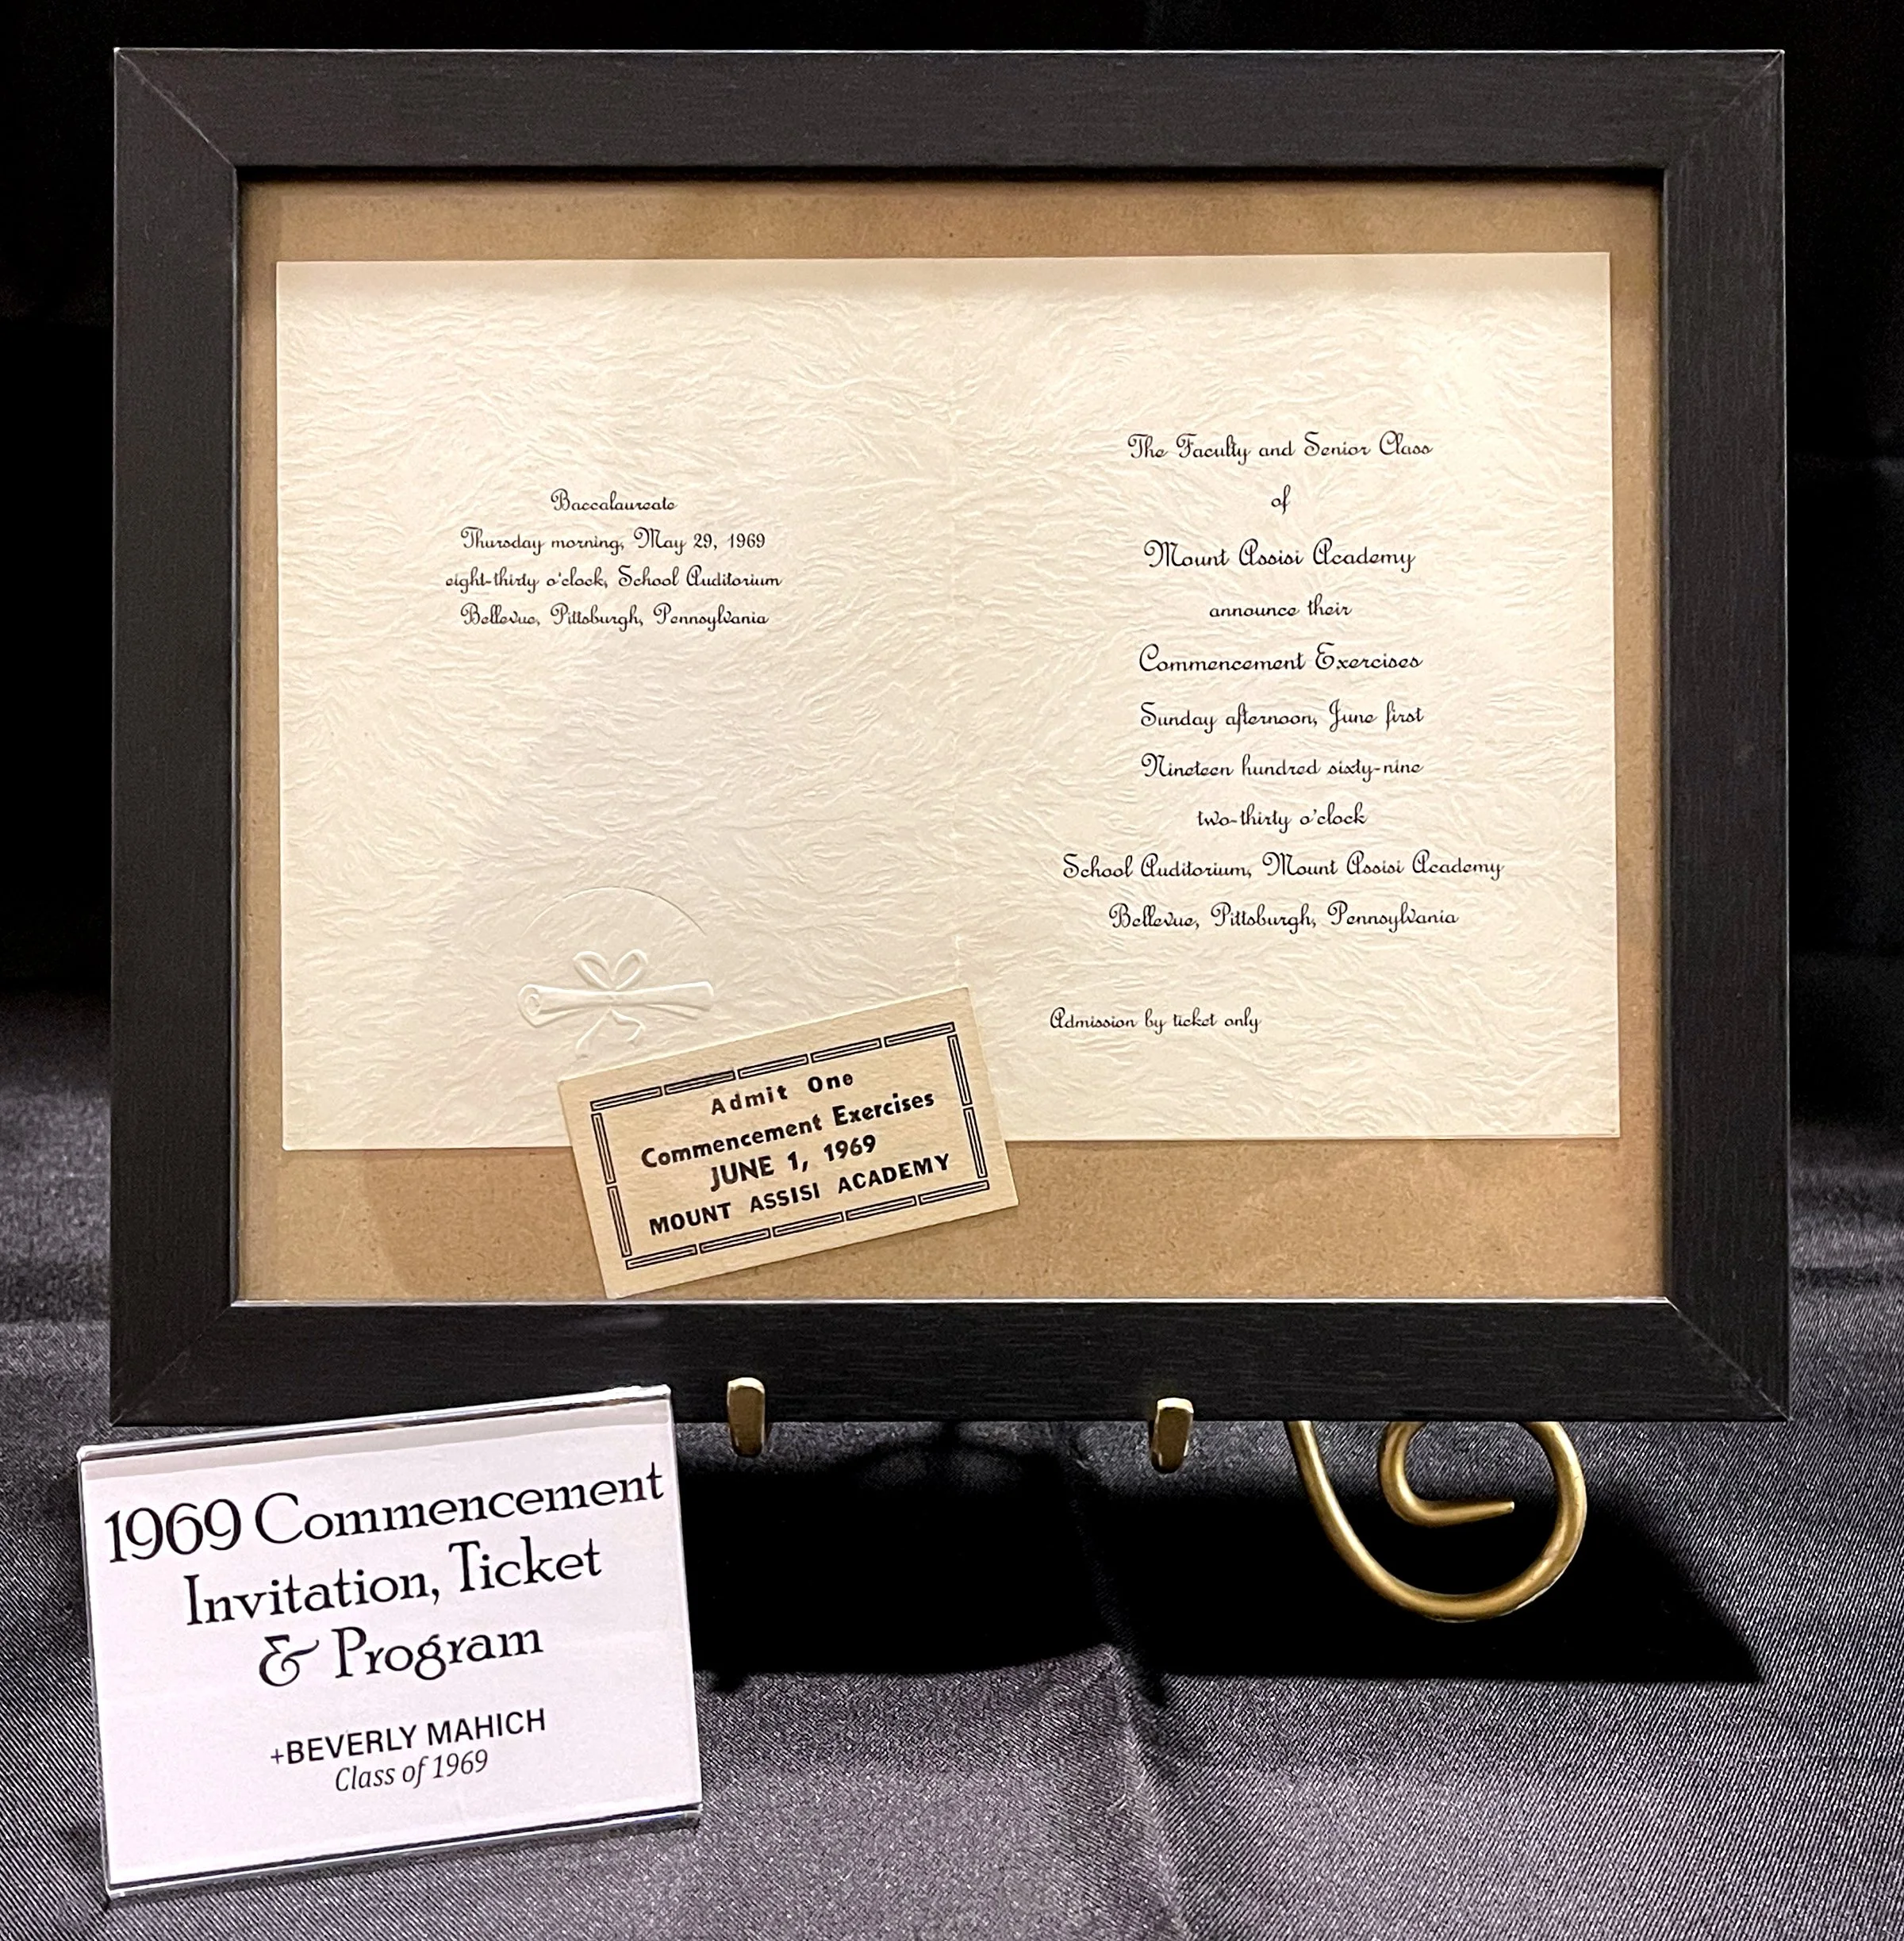 Baccalaureate
Thursday morning, May 29, 1969
eight-thirty o'clock, School Auditorium
Bellevue, Pittsburgh, Pennsylvania
The Faculty and Senior Class
of
Mount Assisi Academy
announce their
Commencement Exercises
Sunday afternoon, June first
Nineteen hundred sixty-nine
two-thirty o'clock
School Auditorium, Mount Assisi Academy
Bellevue, Pittsburgh, Pennsylvania
Admission by ticket only
Admit One
Commencement Exercises
JUNE 1, 1969
MOUNT ASSISI ACADEMY
1969 Commencement
Invitation, Ticket
& Program
+BEVERLY MAHICH
Class of 1969